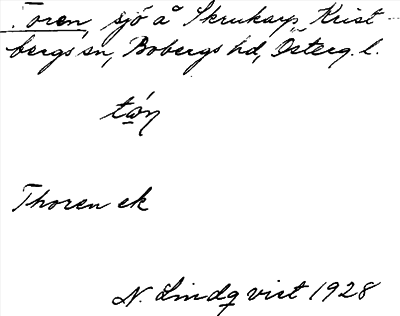 Toren, sjö å Skrukarp, Krist
bergs sn, Bobergs hd, Österg. l.
Thoren ek
N. Lindqvist 1928